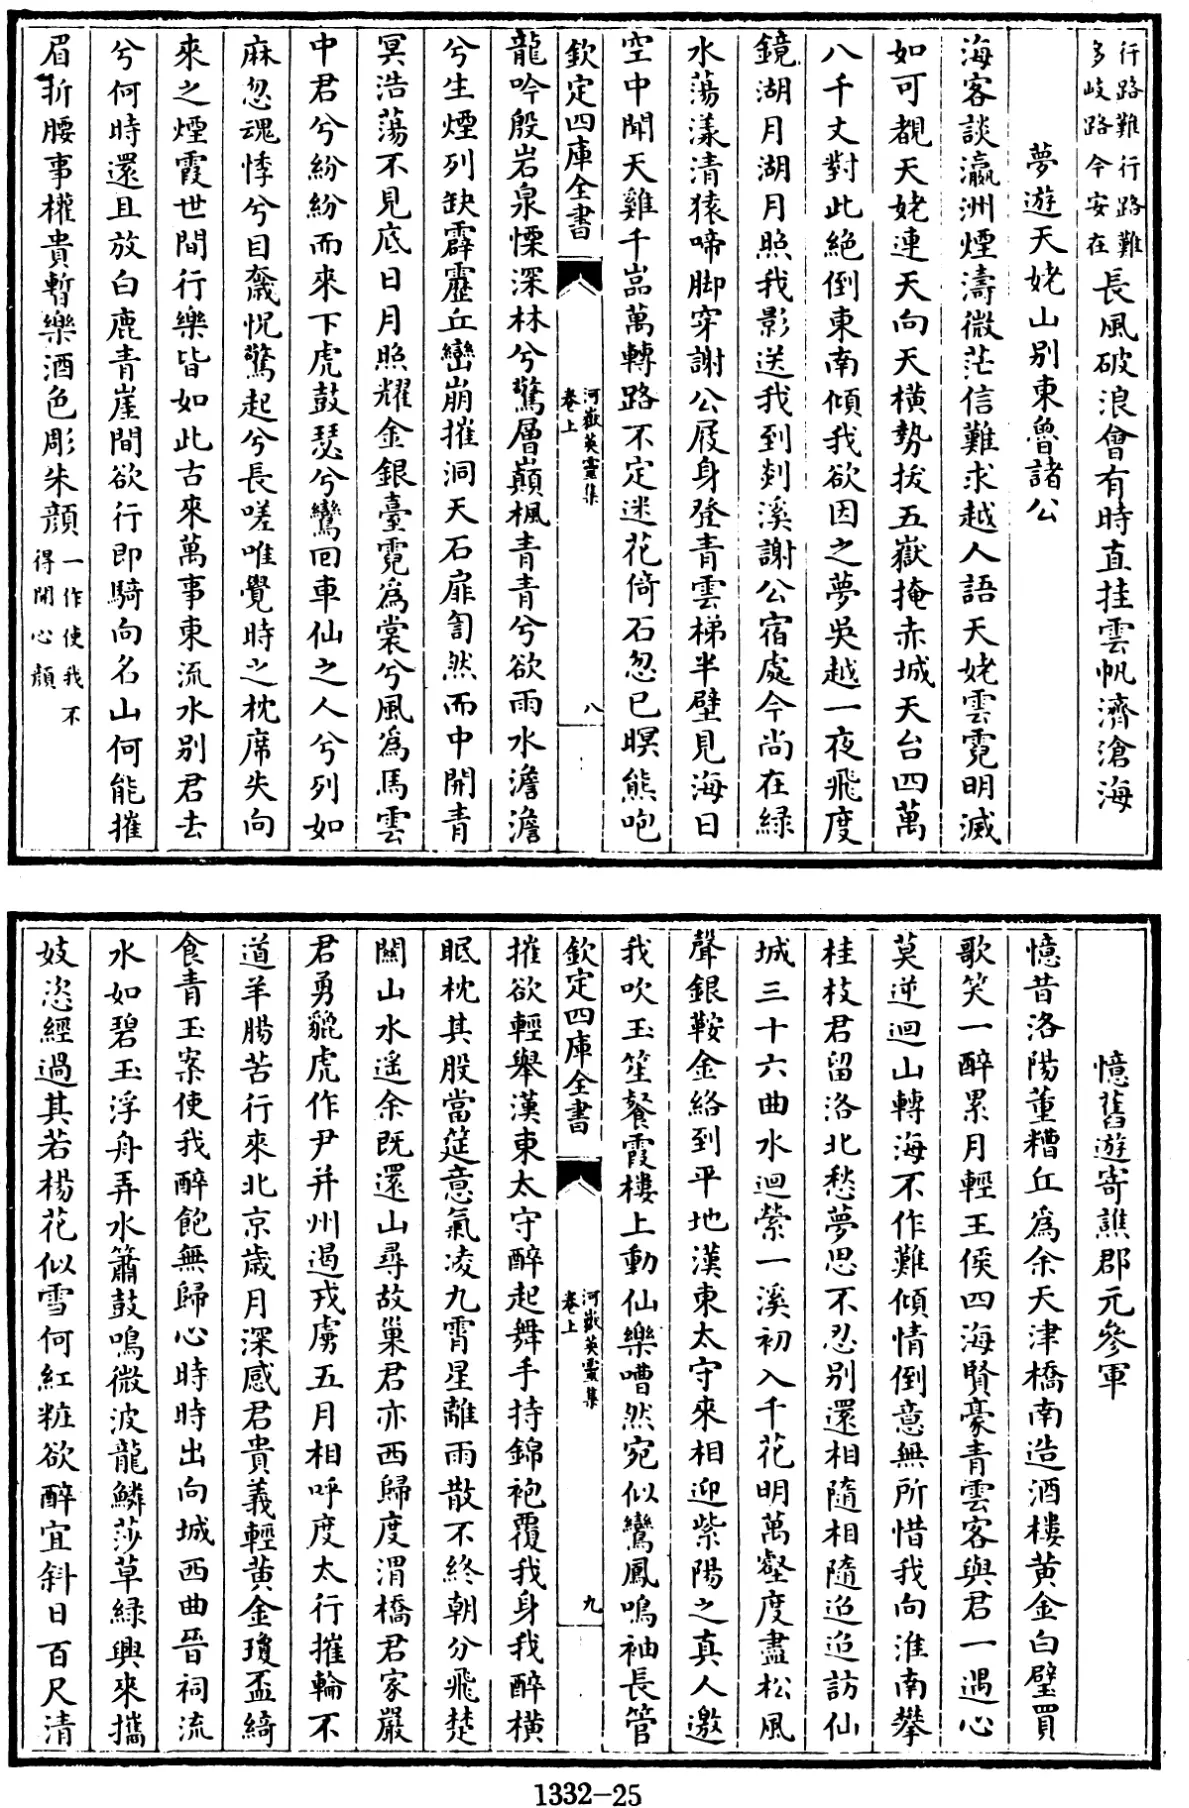 行路難行路難
多岐路今安在
長風破浪會有時直挂雲帆濟滄海
夢遊天姥山別東魯諸公
海客談瀛洲煙濤微茫信難求越人語天姥雲霓明滅
如可覩天姥連天向天橫勢拔五嶽掩赤城天台四萬
八千丈對此絶倒東南傾我欲因之夢吳越一夜飛度
鏡湖月湖月照我影送我到剡溪謝公宿處今尚在緑
水蕩漾清猿啼脚穿謝公屐身登青雲梯半壁見海日
空中聞天雞千嵓萬轉路不定迷花倚石忽已暝熊咆
欽定四庫全書
河嶽英靈集
卷上
八
龍吟殷岩泉慄深林兮驚層巔楓青青兮欲雨水澹澹
兮生煙列缺霹靂丘巒崩摧洞天石扉訇然而中開青
冥浩蕩不見底日月照耀金銀臺霓為裳兮風為馬雲
中君兮紛紛而來下虎鼓瑟兮鸞回車仙之人兮列如
麻忽魂悸兮目𥉂怳驚起兮長嗟唯覺時之枕席失向
來之煙霞世間行樂皆如此古來萬事東流水別君去
兮何時還且放白鹿青崖間欲行即騎向名山何能摧
眉折腰事權貴暫樂酒色彫朱顔
一作使我不
得開心顔
憶舊遊寄譙郡元參軍
憶昔洛陽董糟丘為余天津橋南造酒樓黄金白璧買
歌笑一醉累月輕王侯四海賢豪青雲客與君一遇心
莫逆迴山轉海不作難傾情倒意無所惜我向淮南攀
桂枝君留洛北愁夢思不忍別還相隨相隨迢迢訪仙
城三十六曲水迴縈一溪初入千花明萬壑度盡松風
聲銀鞍金絡到平地漢東太守來相迎紫陽之真人邀
我吹玉笙餐霞樓上動仙樂嘈然宛似鸞鳳鳴袖長管
欽定四庫全書
河嶽英靈集
卷上
九
摧欲輕舉漢東太守醉起舞手持錦袍覆我身我醉橫
眠枕其股當筵意氣凌九霄星離雨散不終朝分飛楚
關山水遥余既還山尋故巢君亦西歸度渭橋君家嚴
君勇貔虎作尹并州遏戎虜五月相呼度太行摧輪不
道羊腸苦行來北京歲月深感君貴義輕黄金瓊盃綺
食青玉案使我醉飽無歸心時時出向城西曲晉祠流
水如碧玉浮舟弄水簫鼓鳴微波龍鱗莎草緑興來攜
妓恣經過其若楊花似雪何紅粧欲醉宜斜日百尺清
1332-25